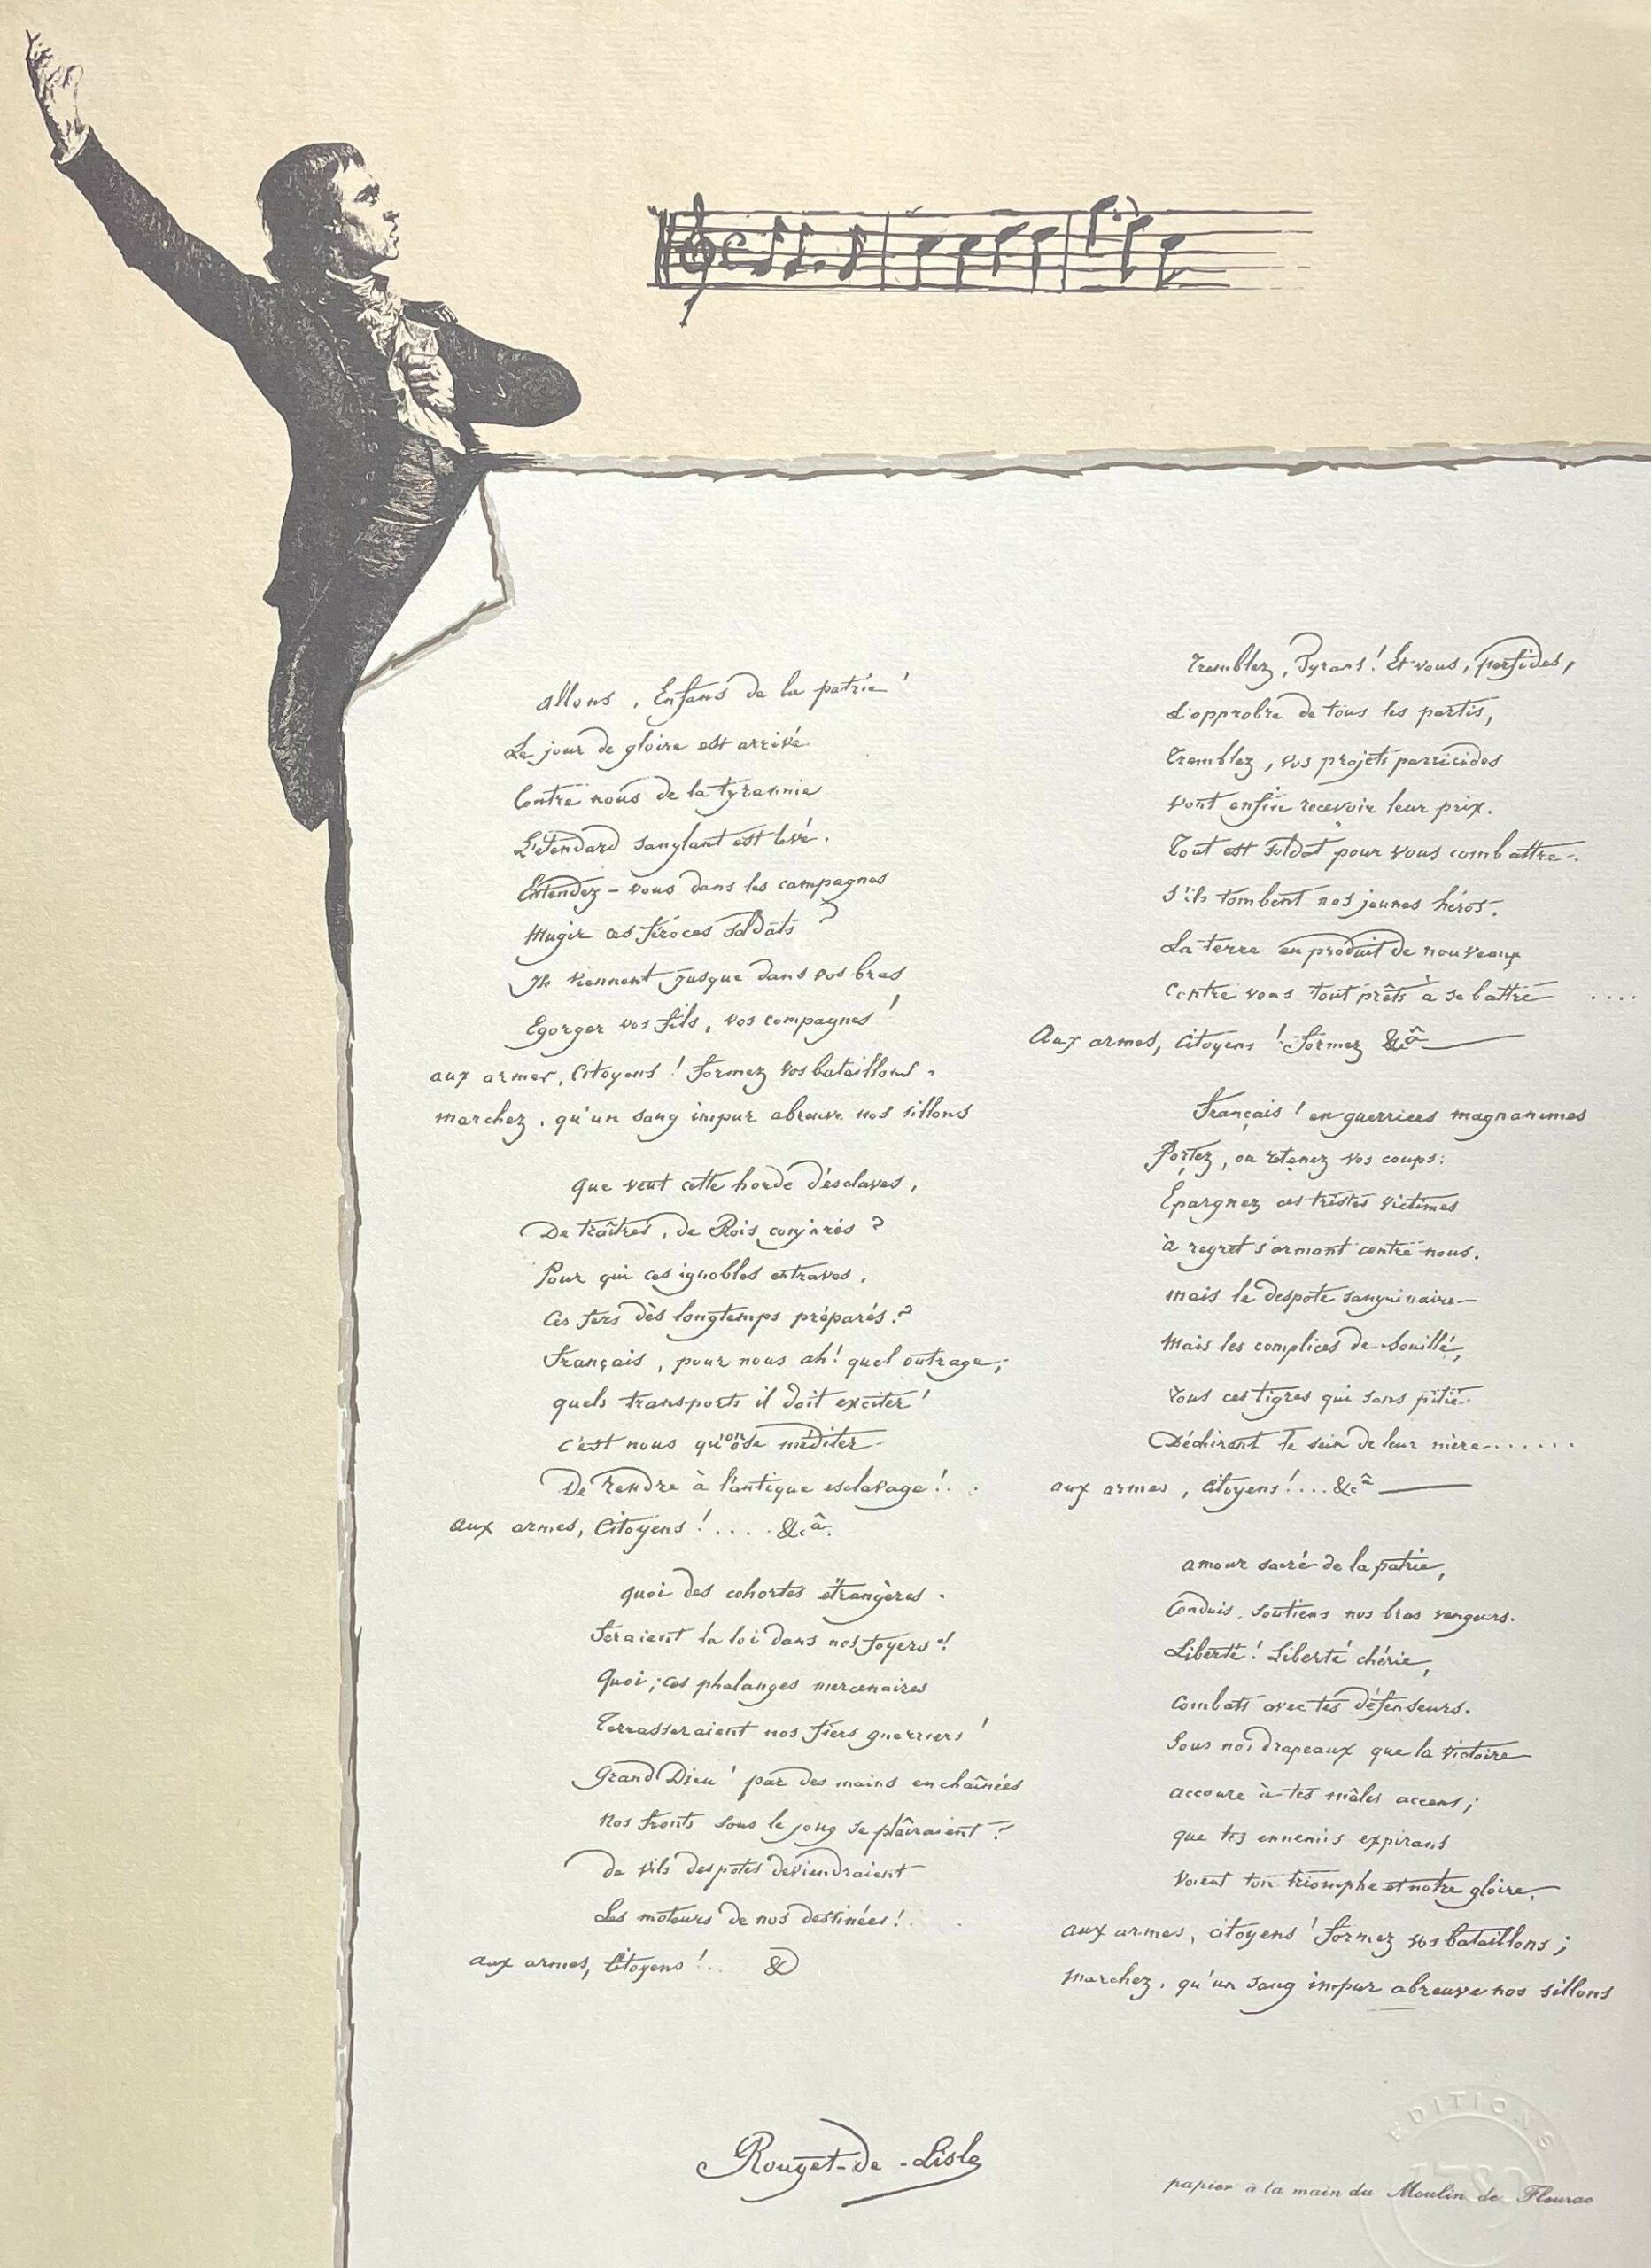 Allons, Enfans de la patrie !
Le jour de gloire est arrivé
Contre nous de la tyrannie
L'étendard sanglant est levé.
Entendez-vous dans les campagnes
Mugir ces féroces soldats ?
Ils viennent jusque dans vos bras
Egorger vos fils, vos compagnes !
aux armes, Citoyens ! formez vos bataillons.
marchez, qu'un sang impur abreuve nos sillons
que veut cette horde d'esclaves,
De traîtres, de Rois conjurés ?
Pour qui ces ignobles entraves,
Ces fers dès longtemps préparés ?
français, pour nous ah! quel outrage,
quels transports il doit exciter !
c'est nous qu'on ose méditer
De rendre à l'antique esclavage !..
aux armes, Citoyens !.... &.â.
quoi des cohortes étrangères.
feraient la loi dans nos foyers !
Quoi ; ces phalanges mercenaires
Terrasseraient nos fiers guerriers !
Grand Dieu ! par des mains enchaînées
Nos fronts sous le joug se plairaient ?
de vils despotes deviendraient
Les moteurs de nos destinées !..
aux armes, Citoyens !.. &
Tremblez, Tyrans ! Et vous, perfides,
L'opprobre de tous les partis,
Tremblez, vos projets parricides
vont enfin recevoir leur prix.
Tout est soldat pour vous combattre.
S'ils tombent nos jeunes héros.
La terre en produit de nouveaux
Contre vous tout prêts à se battre ....
Aux armes, Citoyens ! formez &.â
français ! en guerriers magnanimes
Portez, ou retenez vos coups.
Épargnez ces tristes victimes
à regret s'armant contre nous.
mais le despote sanguinaire
Mais les complices de Bouillé,
Tous ces tigres qui sans pitié
Déchirent le sein de leur mère......
aux armes, Citoyens !.... &.â
amour sacré de la patrie,
Conduis, soutiens nos bras vengeurs.
Liberté ! Liberté chérie,
combats avec tes défenseurs.
Sous nos drapeaux que la victoire
accoure à tes mâles accens ;
que tes ennemis expirans
voient ton triomphe et notre gloire.
aux armes, citoyens ! formez vos bataillons ;
Marchez, qu'un sang impur abreuve nos sillons
Rouget-de-Lisle
EDITIONS
papier à la main du Moulin de Fleurac